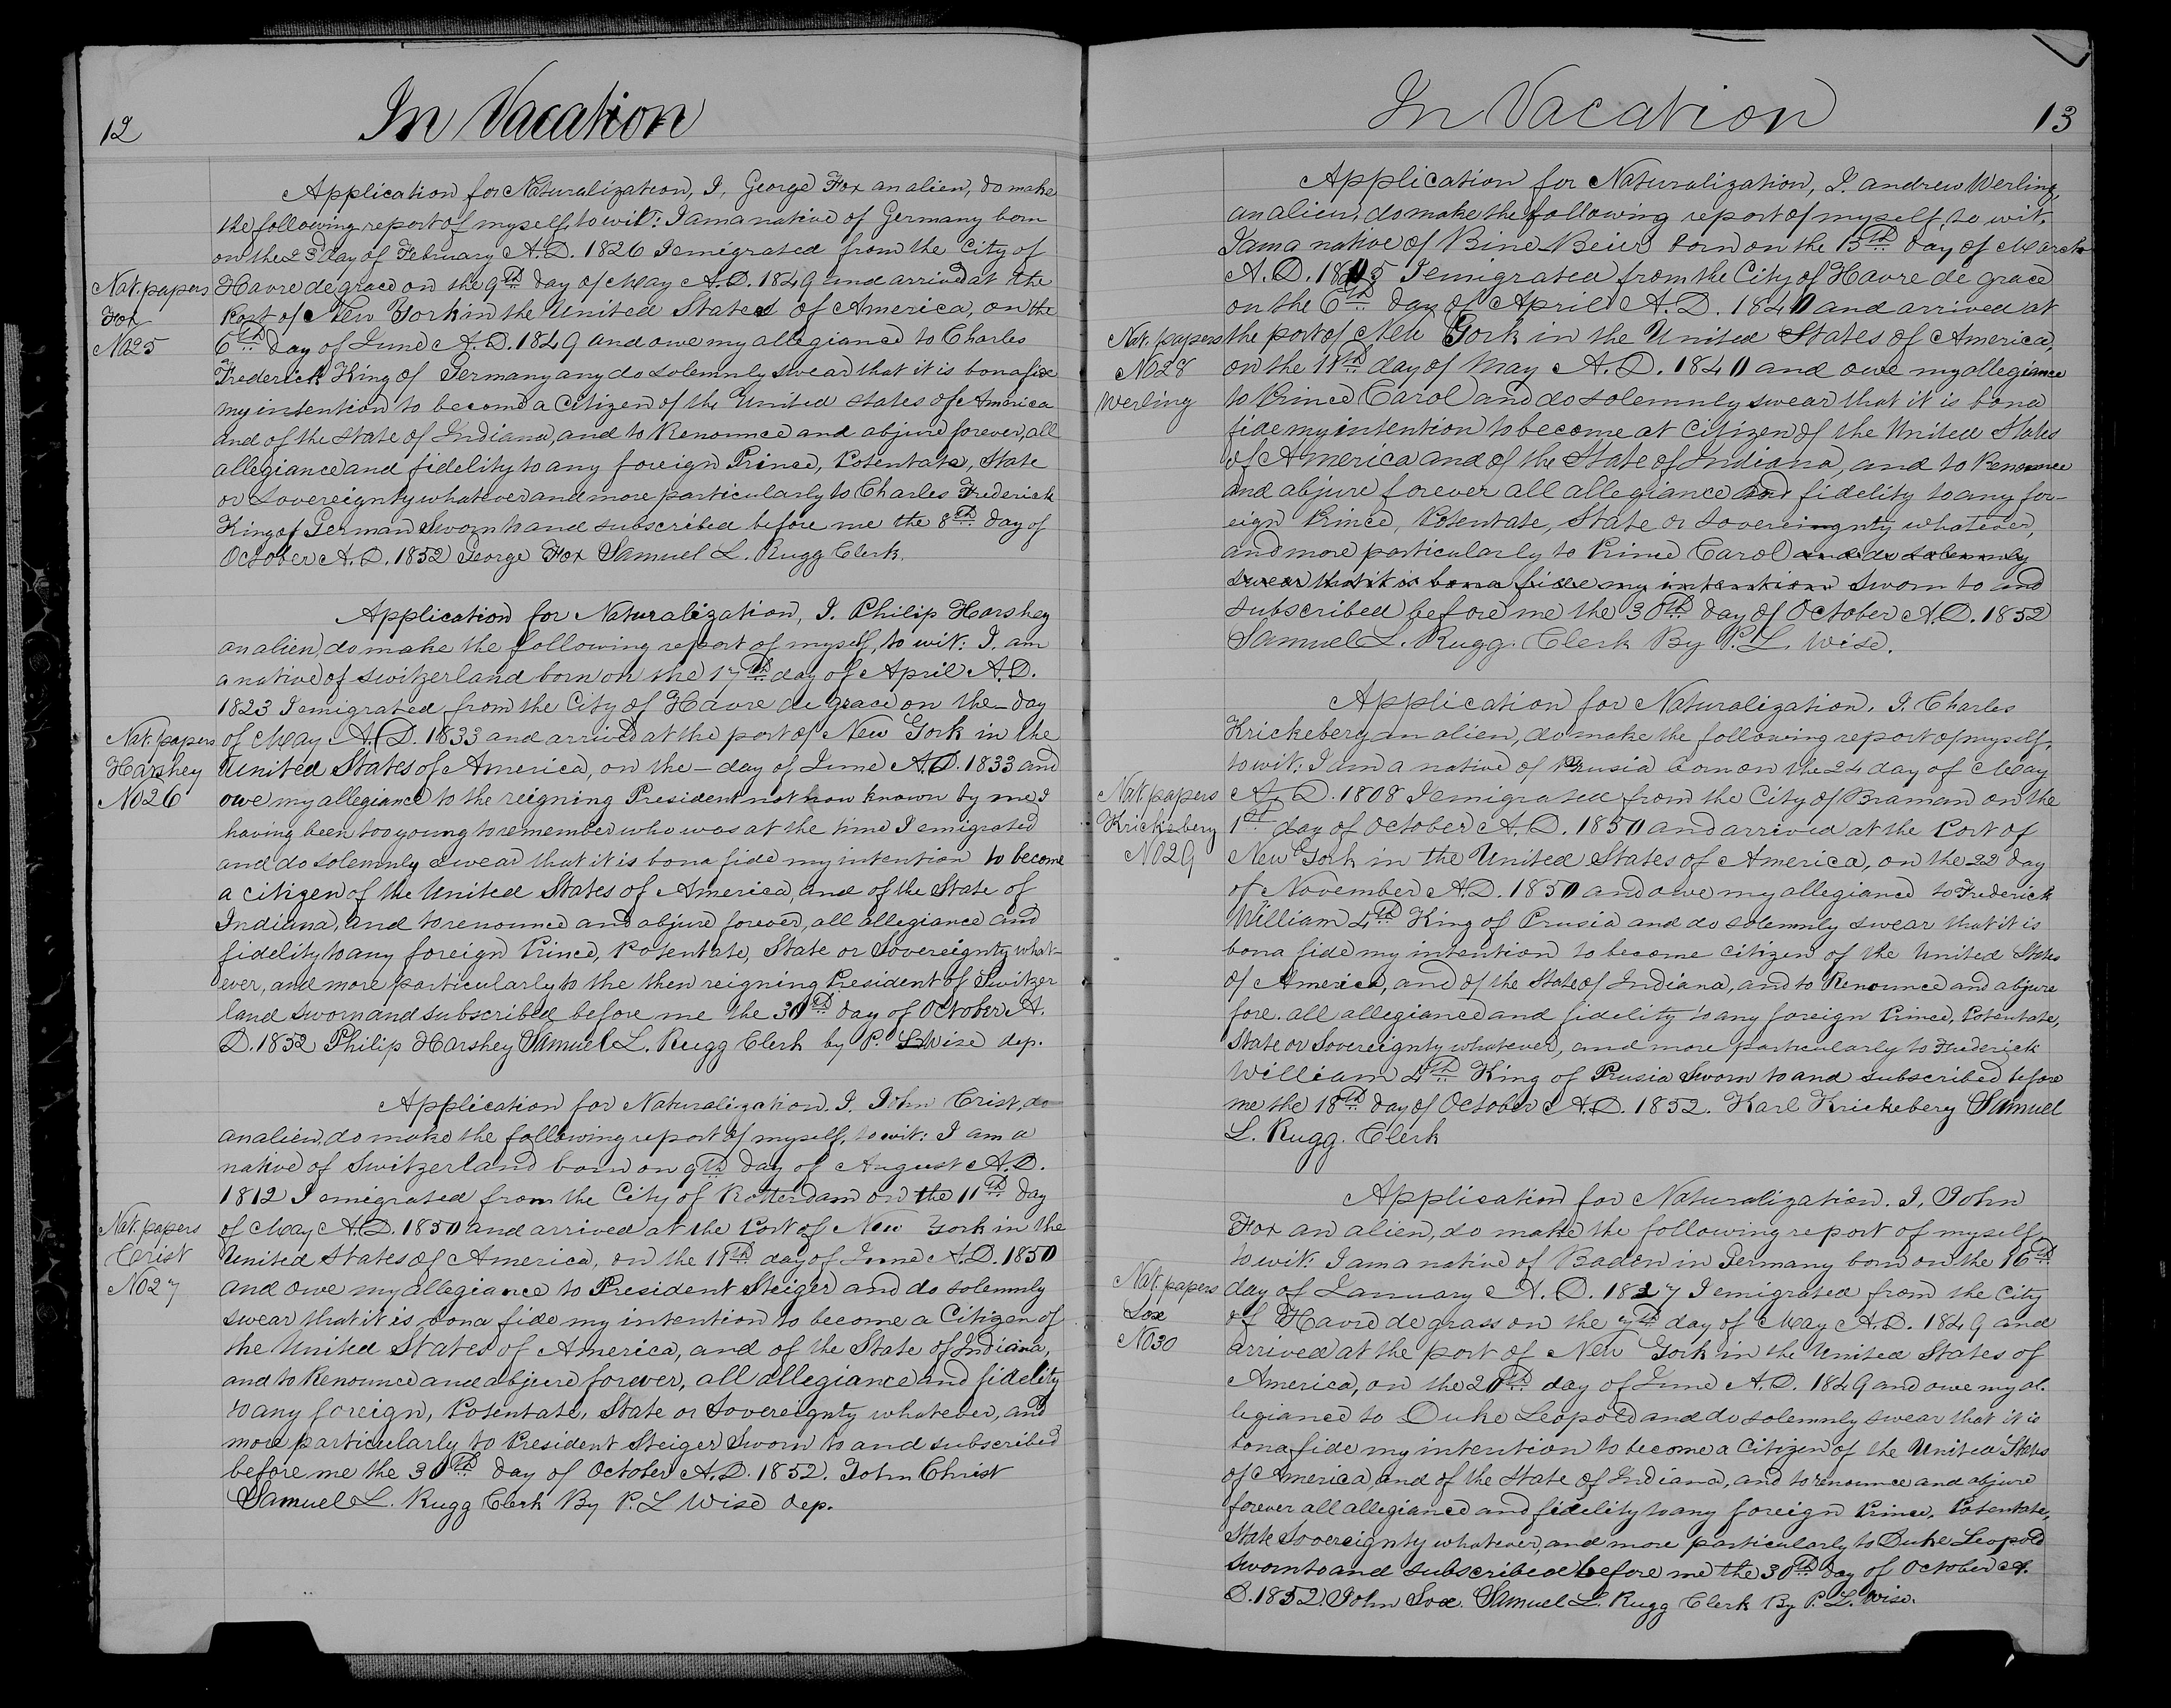 12
In Vacation
Application for Naturalization, I, George Fox an alien, do make
the following report of myself, to wit: I am a native of Germany born
on the 23d day of February A.D. 1826 I emigrated from the City of
Nat. papers
Fox
No 25
Havre de grace on the 9th day of May A.D. 1849 and arrived at the
Port of New York in the United States of America, on the
6th day of June A.D. 1849 and owe my allegiance to Charles
Frederick King of Germany any do solemnly swear that it is bona fide
my intention to become a Citizen of the United States of America
and of the State of Indiana, and to Renounce and abjure forever, all
allegiance and fidelity to any foreign Prince, Potentate, State
or Sovereignty whatever and more particularly to Charles Frederick
King of German Sworn to and subscribed before me the 8th day of
October A.D. 1852 George Fox Samuel L. Rugg Clerk.
Application for Naturalization, I. Philip Harshey
an alien, do make the following report of myself, to wit: I. am
a native of Switzerland born on the 17th day of April A.D.
1823 I emigrated from the City of Havre de grace on the – day
Nat. papers
Harshey
No 26
of May A.D. 1833 and arrived at the port of New York in the
United States of America, on the – day of June A.D. 1833 and
owe my allegiance to the reigning President not now known by me I
having been too young to remember who was at the time I emigrated
and do solemnly swear that it is bona fide my intention to become
a citizen of the United States of America, and of the State of
Indiana, and to renounce and abjure forever, all allegiance and
fidelity to any foreign Prince, Potentate, State or Sovereignty what-
ever, and more particularly to the then reigning President of Switzer
land sworn and subscribed before me the 30th day of October A.
D. 1852 Philip Harshey Samuel L. Rugg Clerk by P. L Wise dep.
Application for Naturalization. I. John Crist, do
an alien, do make the following report of myself, to wit: I am a
native of Switzerland born on 9th day of August A.D.
1812 I emigrated from the City of Rotterdam on the 11th day
Nat. papers
Crist
No 27
of May A.D. 1850 and arrived at the Port of New York in the
United States of America, on the 11th day of June A.D. 1850
and owe my allegiance to President Steiger and do solemnly
swear that it is bona fide my intention to become a Citizen of
the United States of America, and of the State of Indiana,
and to Renounce and abjure forever, all allegiance and fidelity
to any foreign, Potentate, State or Sovereignty whatever, and
more particularly to President Steiger Sworn to and subscribed
before me the 30th day of October A.D. 1852. John Christ
Samuel L. Rugg Clerk By P. L Wise dep.
In Vacation
13
Application for Naturalization, I. andrew Werling,
an alien, do make the following report of myself, to wit.
I am a native of Bine Beier born on the 15th day of March
A.D. 1815 I emigrated from the City of Havre de grace
on the 6th day of April A.D. 1840 and arrived at
Nat. papers
No 28
Werling
the port of New York in the United States of America,
on the 11th day of May A.D. 1840 and owe my allegiance
to Prince Carol and do solemnly swear that it is bona
fide my intention to become at Citizen of the United States
of America and of the State of Indiana, and to Renounce
and abjure forever all allegiance and fidelity to any for-
eign Prince, Potentate, State or Sovereingnty whatever,
and more particularly to Prince Carol and do solemnly
swear that it is bona fide my intention sworn to and
subscribed before me the 30th day of October A.D. 1852
Samuel L. Rugg. Clerk By P. L. Wise.
Application for Naturalization. I. Charles
Krickeberg an alien, do make the following report of myself,
to wit: I am a native of Prusia born on the 24 day of May
Nat. papers
Krickeberg
No 29
A.D. 1808 I emigrated from the City of Braman on the
1st day of October A.D. 1850 and arrived at the Port of
New York in the United States of America, on the 22 day
of November A.D. 1850 and owe my allegiance to Frederick
William 4th King of Prusia and do solemnly swear that it is
bona fide my intention to become citizen of the United States
of America, and of the State of Indiana, and to Renounce and abjure
fore. all allegiance and fidelity to any foreign Prince, Potentate,
State or Sovereignty whatever, and more particularly to Frederick
William 4th King of Prusia Sworn to and subscribed before
me the 18th day of October A.D. 1852. Karl Krickeberg Samuel
L. Rugg. Clerk
Application for Naturalization. I, John
Fox an alien, do make the following report of myself
to wit: I am a native of Baden in Germany born on the 16th
Nat. papers
Sox
No 30
day of January A.D. 1827 I emigrated from the City
of Havre de grass on the 7th day of May A.D. 1849 and
arrived at the port of New York in the United States of
America, on the 20th day of June A.D. 1849 and owe my al-
legiance to Duke Leopold and do solemnly swear that it is
bona fide my intention to become a Citizen of the United States
of America, and of the State of Indiana, and to renounce and abjure
forever all allegiance and fidelity to any foreign Prince, Potentate,
State Sovereignty whatever, and more particularly to Duke Leopold
sworn to and subscribed before me the 30th day of October A.
D. 1852. John Sox. Samuel L. Rugg Clerk By P. L. Wise.